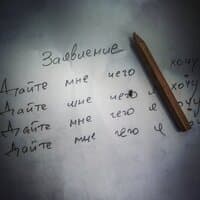 Заявление
Дайте мне чего хочу
Дайте мне чего я хочу
Дайте мне чего я хочу
Дайте мне чего я хочу